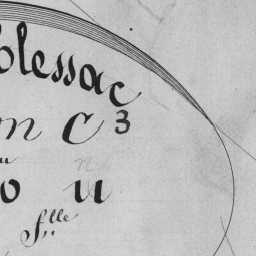 blessac
m C 3
u
o u
f.lle